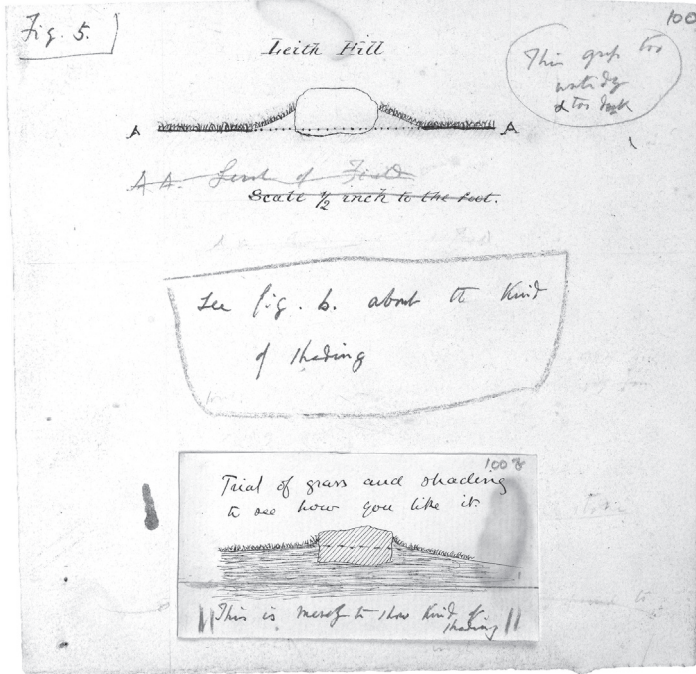 Fig. 5.
100
Leith Hill
This grass too
untidy
& too dark
A A
A A. Level of Field
Scale 1/2 inch to the foot.
See fig. 6. about the kind
of shading
100 8
Trial of grass and shading
to see how you like it.
This is merely to show kind of
shading